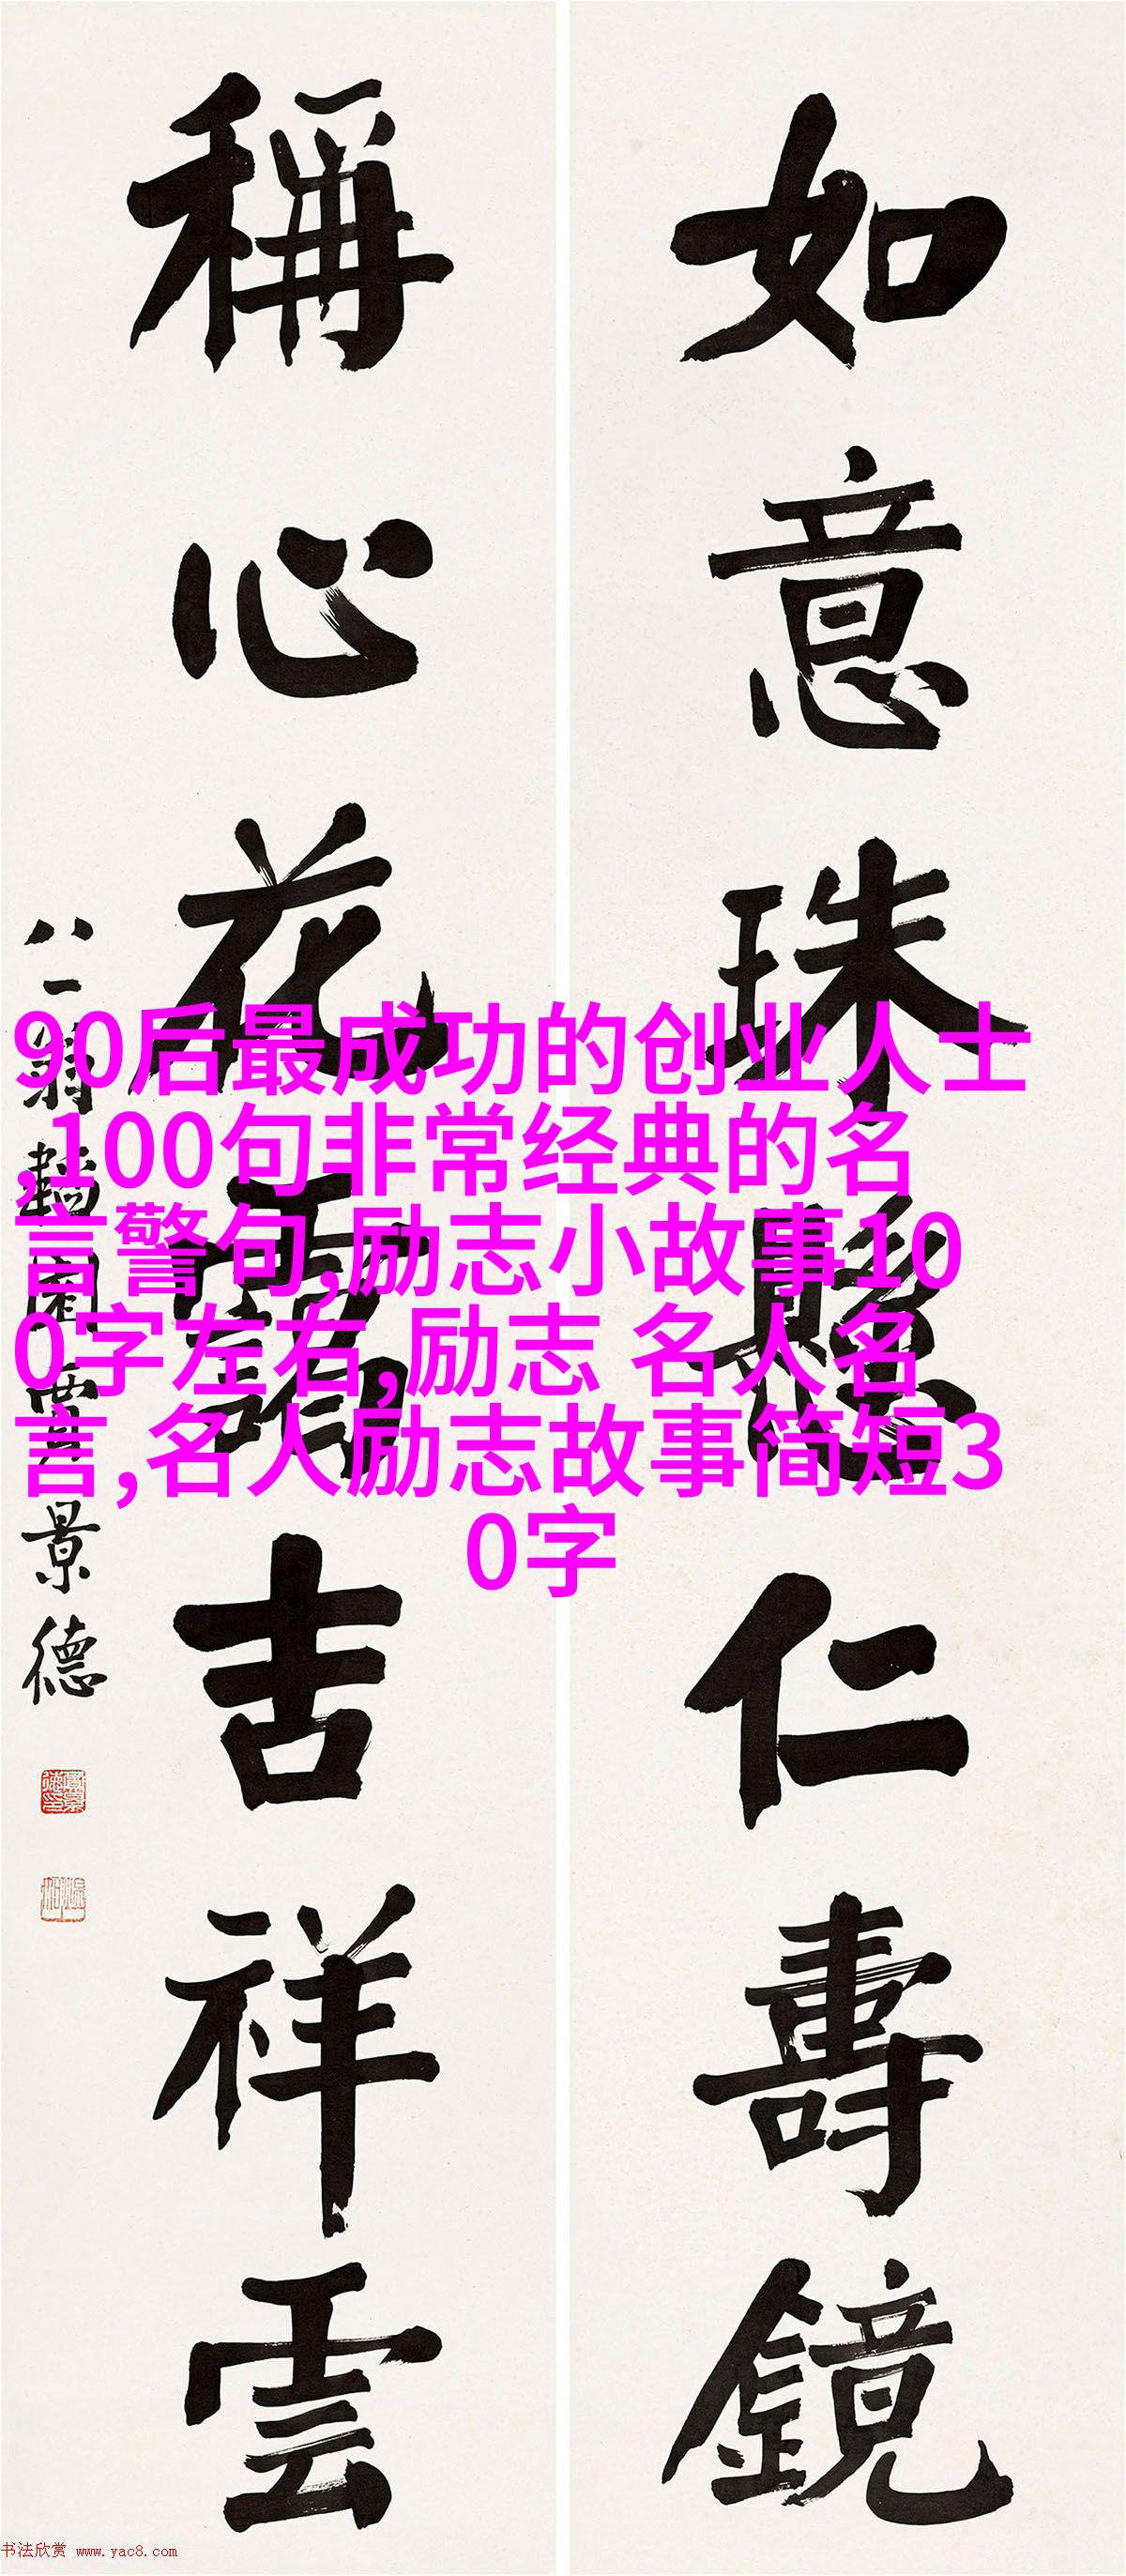 如意珠懸仁壽鏡
稱心花靄吉祥雲
八一翁韜園賈景德
90后最成功的创业人士
,100句非常经典的名
言警句,励志小故事10
0字左右,励志 名人名
言,名人励志故事简短3
0字
书法欣赏 www.yac8.com